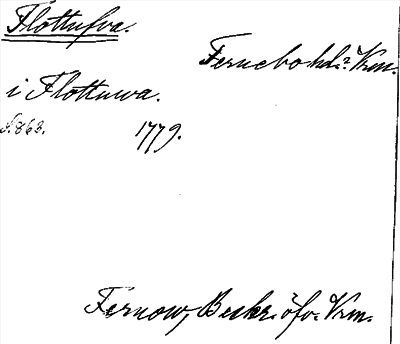 Flottufva.
Fernebo hd? Vrm.
i Flottuwa.
S. 868.
1779.
Fernow, Beskr. öfv. Vrm.